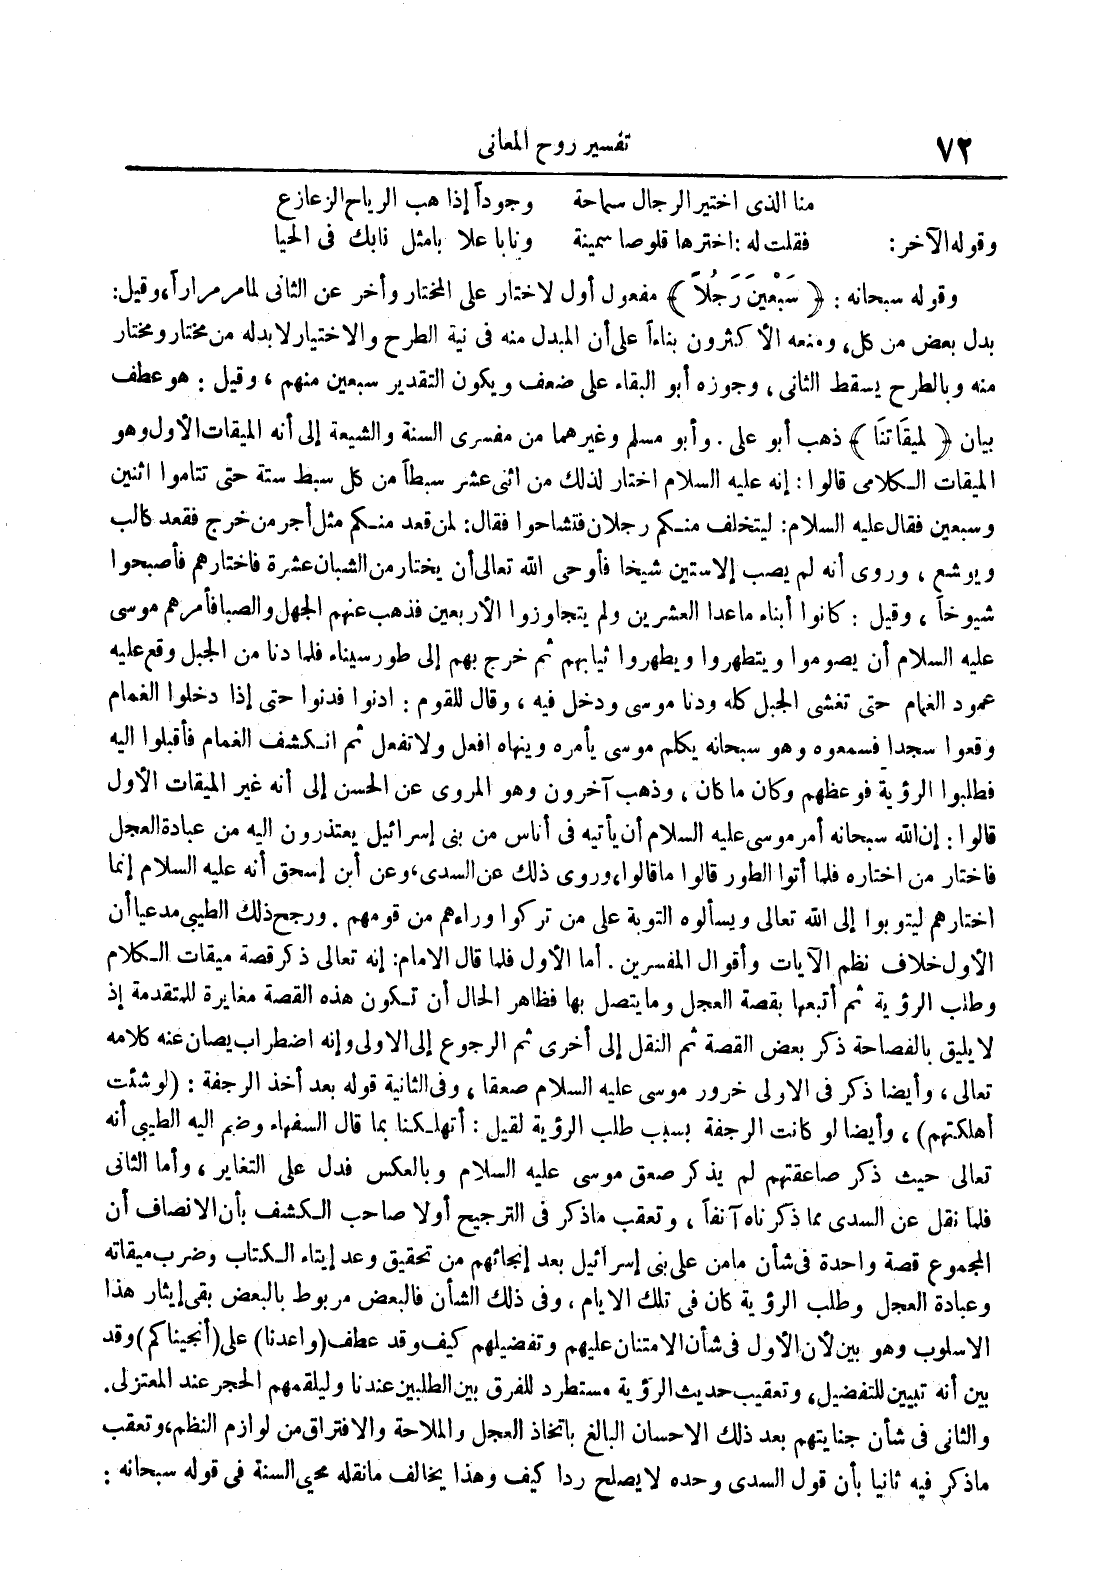 ٧٢
تفسير روح المعانى
منا الذى اختير الرجال سماحة وجوداً إذا هب الرياح الزعازع
وقوله الآخر: فقلت له: اخترها قلوصا سمينة ونابا علا بامثل نابك فى الحيا
وقوله سبحانه: ﴿ سَبْعينَ رَجُلاً ﴾ مفعول أول لاختار على المختار وأخر عن الثانى لما مر مراراً، وقيل:
بدل بعض من كل، ومنعه الأكثرون بناءاً على أن المبدل منه فى نية الطرح والاختيار لا بدله من مختار ومختار
منه وبالطرح يسقط الثانى، وجوزه أبو البقاء على ضعف ويكون التقدير سبعين منهم، وقيل: هو عطف
بيان ﴿ لميقَاتنَا ﴾ ذهب أبو على. وأبو مسلم وغيرهما من مفسرى السنة والشيعة إلى أنه الميقات الأول وهو
الميقات الكلامى قالوا: إنه عليه السلام اختار لذلك من اثنى عشر سبطاً من كل سبط ستة حتى تتاموا اثنين
وسبعين فقال عليه السلام: ليتخلف منكم رجلان فتشاحوا فقال: لمن قعد منكم مثل أجر من خرج فقعد كالب
ويوشع، وروى أنه لم يصب إلا ستين شيخا فأوحى الله تعالى أن يختار من الشبان عشرة فاختارهم فأصبحوا
شيوخاً، وقيل: كانوا أبناء ما عدا العشرين ولم يتجاوزوا الأربعين فذهب عنهم الجهل والصبا فأمرهم موسى
عليه السلام أن يصوموا ويتطهروا ويطهروا ثيابهم ثم خرج بهم إلى طور سيناء فلما دنا من الجبل وقع عليه
عمود الغمام حتى تغشى الجبل كله ودنا موسى ودخل فيه، وقال للقوم: ادنوا فدنوا حتى إذا دخلوا الغمام
وقعوا سجدا فسمعوه وهو سبحانه يكلم موسى يأمره وينهاه افعل ولا تفعل ثم انكشف الغمام فأقبلوا اليه
فطلبوا الرؤية فوعظهم وكان ما كان، وذهب آخرون وهو المروى عن الحسن إلى أنه غير الميقات الأول
قالوا: إن الله سبحانه أمر موسى عليه السلام أن يأتيه فى أناس من بنى إسرائيل يعتذرون اليه من عبادة العجل
فاختار من اختاره فلما أتوا الطور قالوا ما قالوا، وروى ذلك عن السدى، وعن ابن إسحق أنه عليه السلام إنما
اختارهم ليتوبوا إلى الله تعالى ويسألوه التوبة على من تركوا وراءهم من قومهم. ورجح ذلك الطيبى مدعيا أن
الأول خلاف نظم الآيات وأقوال المفسرين. أما الأول فلما قال الامام: إنه تعالى ذكر قصة ميقات الكلام
وطلب الرؤية ثم أتبعها بقصة العجل وما يتصل بها فظاهر الحال أن تكون هذه القصة مغايرة للمتقدمة إذ
لا يليق بالفصاحة ذكر بعض القصة ثم النقل إلى أخرى ثم الرجوع إلى الاولى وإنه اضطراب يصان عنه كلامه
تعالى، وأيضا ذكر فى الاولى خرور موسى عليه السلام صعقا، وفى الثانية قوله بعد أخذ الرجفة: (لو شئت
أهلكتهم)، وأيضا لو كانت الرجفة بسبب طلب الرؤية لقيل: أتهلكنا بما قال السفهاء وضم اليه الطيبى أنه
تعالى حيث ذكر صاعقتهم لم يذكر صعق موسى عليه السلام وبالعكس فدل على التغاير، وأما الثانى
فلما نقل عن السدى مما ذكرناه آنفاً، وتعقب ماذكر فى الترجيح أولا صاحب الكشف بأن الانصاف أن
المجموع قصة واحدة فى شأن مامن على بنى إسرائيل بعد إنجائهم من تحقيق وعد إيتاء الكتاب وضرب ميقاته
وعبادة العجل وطلب الرؤية كان فى تلك الايام، وفى ذلك الشأن فالبعض مربوط بالبعض بقى إيثار هذا
الاسلوب وهو بين لأن الأول فى شأن الامتنان عليهم وتفضيلهم كيف وقد عطف (واعدنا) على (أنجيناكم) وقد
بين أنه تبيين للتفضيل، وتعقيب حديث الرؤية مستطرد للفرق بين الطلبين عندنا وليلقمهم الحجر عند المعتزلى.
والثانى فى شأن جنايتهم بعد ذلك الاحسان البالغ باتخاذ العجل والملاحة والافتراق من لوازم النظم، وتعقب
ماذكر فيه ثانيا بأن قول السدى وحده لا يصلح ردا كيف وهذا يخالف مانقله محيى السنة فى قوله سبحانه: